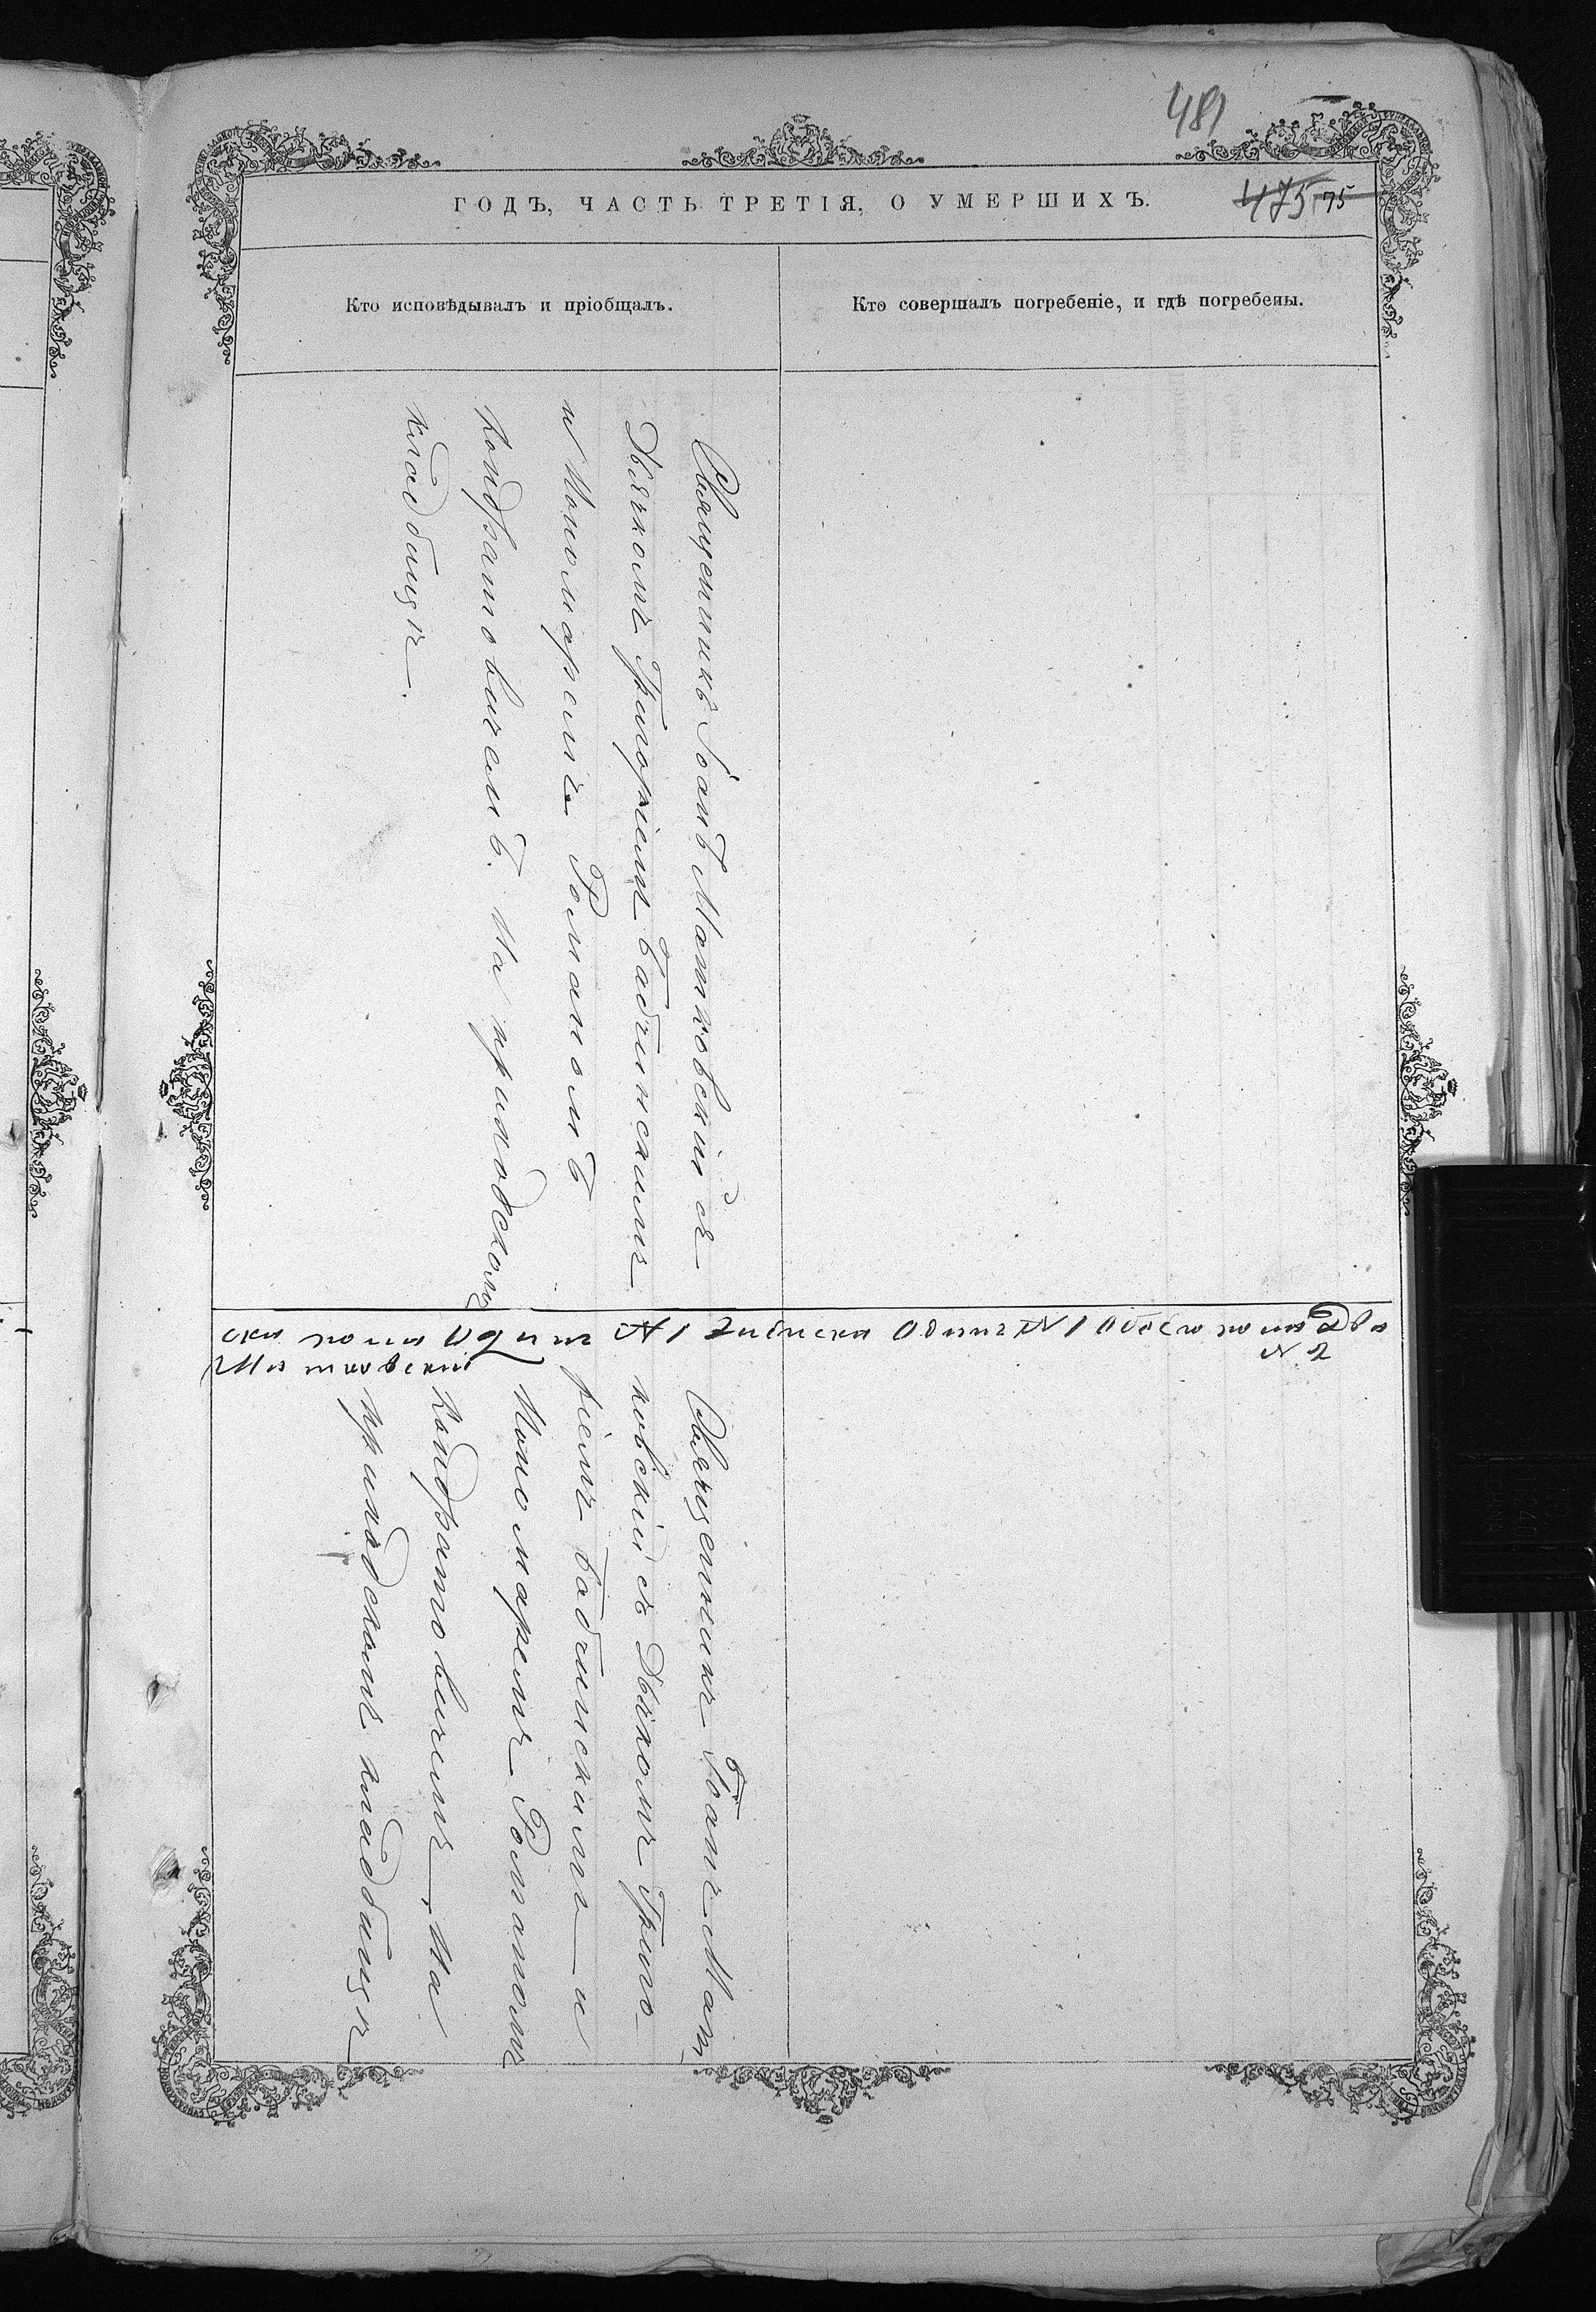 481
ГОДЪ, ЧАСТЬ ТРЕТІЯ, О УМЕРШИХЪ.
475 75
Кто исповѣдывалъ и пріобщалъ.
Кто совершалъ погребеніе, и гдѣ погребены.
Священникъ Іоанъ Матковскій съ
Дьячкомъ Григоріемъ Бабчинскимъ
и Пономаремъ Романомъ
Кондратовичемъ. На приходскомъ
кладбищѣ.
пола Одинъ № 1 Женска Одинъ № 1 Обоего пола Два
№ 2
Матковскій
Священникъ Іоанъ Мат
ковскій съ Дьякомъ Григо
ріемъ Бабчинскимъ и
Пономаремъ Романомъ
Кондратовичемъ. На
приходскомъ кладбищѣ